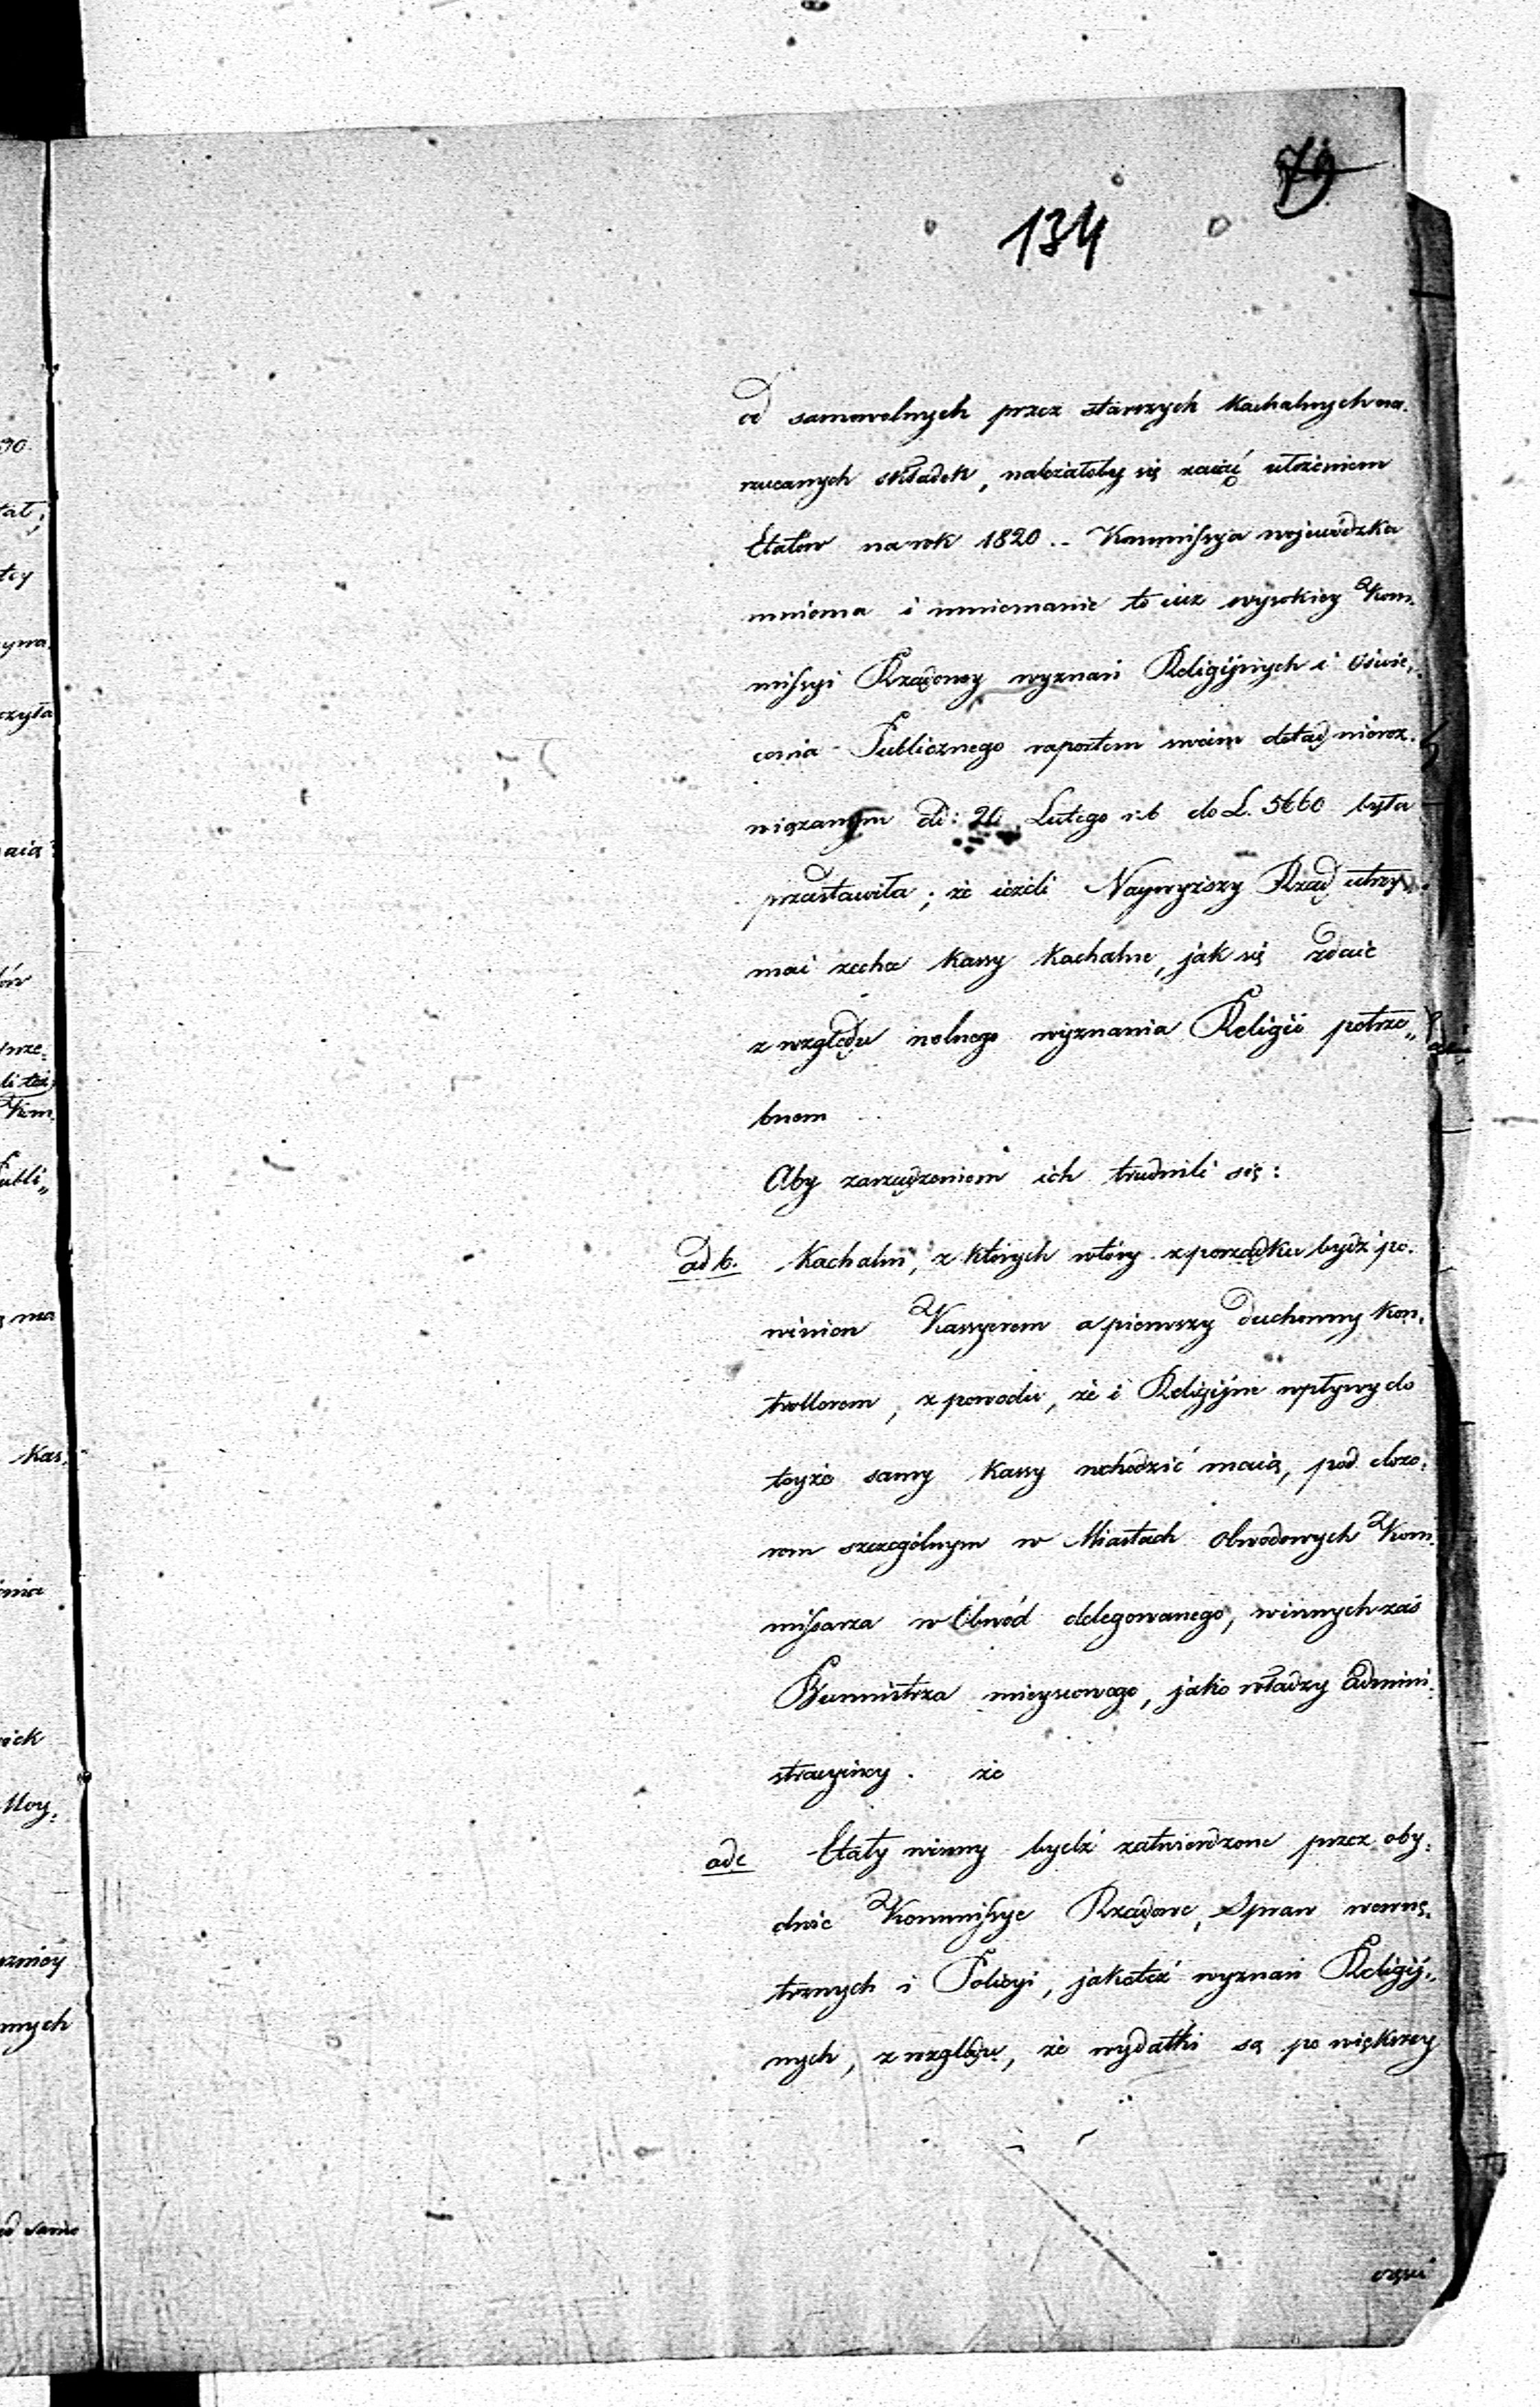 79
134
od samowolnych przez starszych Kachalnych na,
rzucanych składek, należałoby się zaiąć ułożeniem
Etatów na rok 1820.. Kommissyia wojewódzka
mniema i mniemanie to iuż wysokiey Kom,
missyi Rządowey wyznań Religijnych i Oświe,
cenia Publicznego raportem swoim dotąd nieroz,
wiązanym dd: 20 Lutego r. b do L. 5660 była
przedstawiła; że ieżeli Naywyższy Rząd utrzy,
mać zechce Kassy Kachalne, jak się zdaie
z względu wolnego wyznania Religii potrze„
bnem
Aby zarządzeniem ich trudnili się:
ad b. Kachalni, z których wtóry z porządku bydź po,
winien Kassyerem a pierwszy duchowny Kon,
trollorem, z powodu, że i Religijne wpływy do
teyże samy Kassy wchodzić maią, pod dozo,
rem szczególnym w Miastach Obwodowych Kom,
missarza w Obwód delegowanego, w innych zaś
Burmistrza mieyscowego, jako władzy Admini,
stracyiney. że
ad c Etaty winny bydź zatwierdzone przez oby,
dwie Kommissye Rządowe, Spraw wewnę,
trznych i Policyi, jakoteż wyznań Religij„
nych, z względu, że wydatki są po większey
części